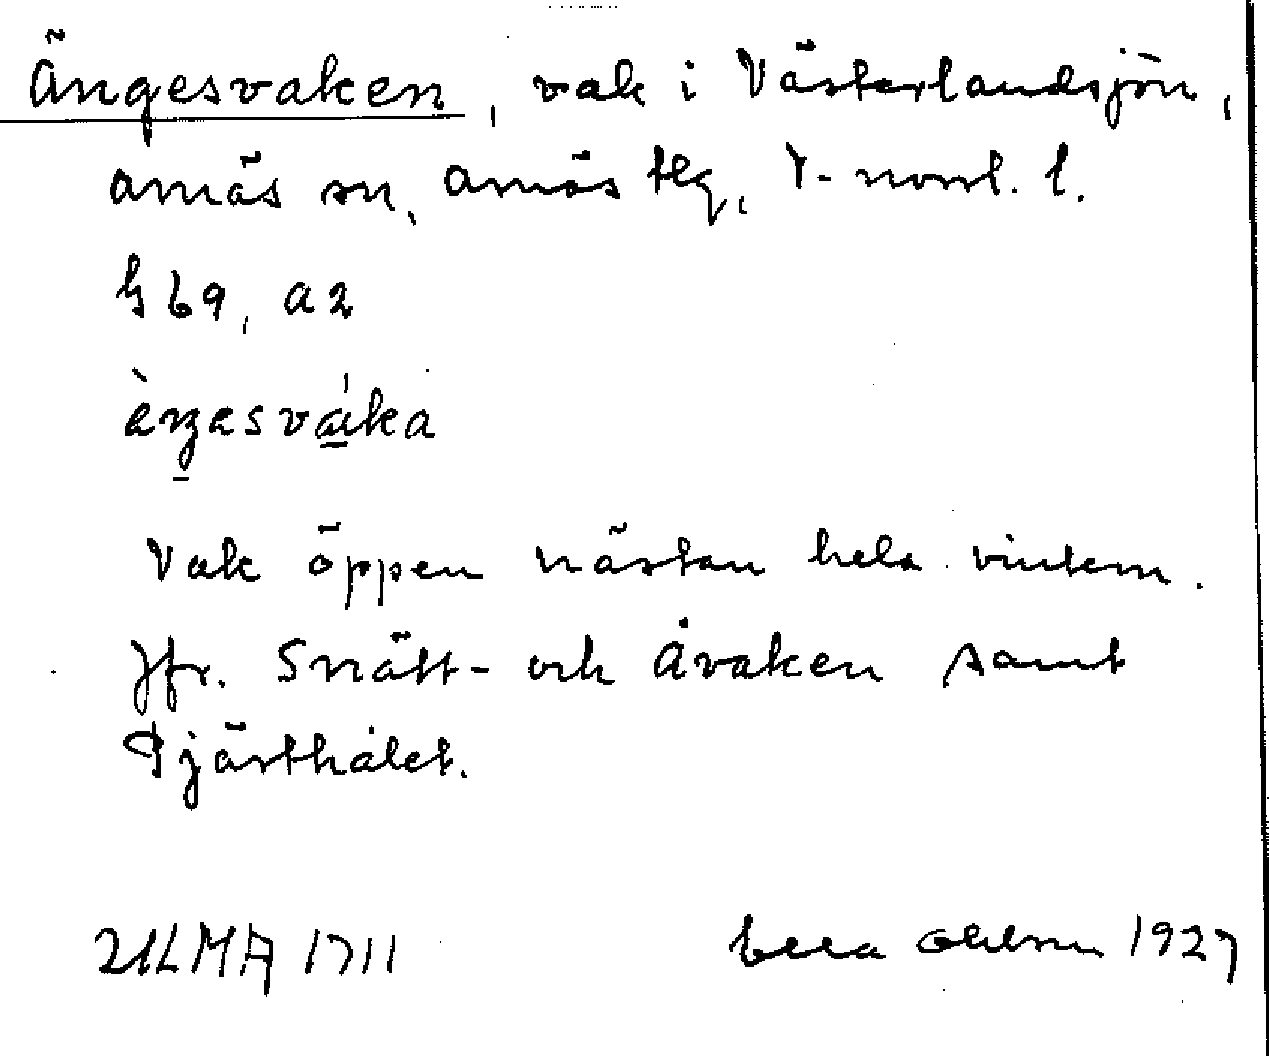 Ängesvaken, vak i Västerlandsjön,
arnäs sn, arnäs tlg, V-norrl. l.
G 69, a2
Vak öppen nästan hela vintern.
Jfr. Snätt- och Åvaken samt
Tjärthålet.
ULMA 1711 Ohlson 1927